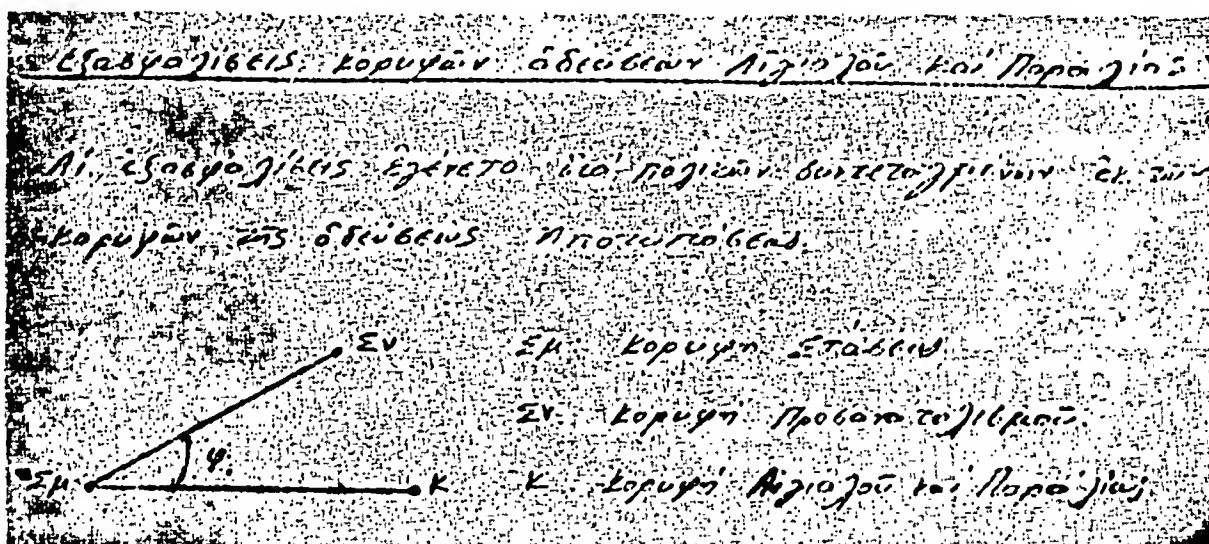 Ἐξασφαλίσεις κορυφῶν ὁδεύσεων Αἰγιαλοῦ καί Παραλίας
Αἱ ἐξασφαλίσεις ἐγένετο διά πολικῶν συντεταγμένων ἐκ τῶν
κορυφῶν τῆς ὁδεύσεως Ἀποτυπώσεως.
Σν
Σμ Κορυφή Στάσεως.
Σν Κορυφή Προσανατολισμοῦ.
φ.
Σμ
Κ
Κ Κορυφή Αἰγιαλοῦ καί Παραλίας.